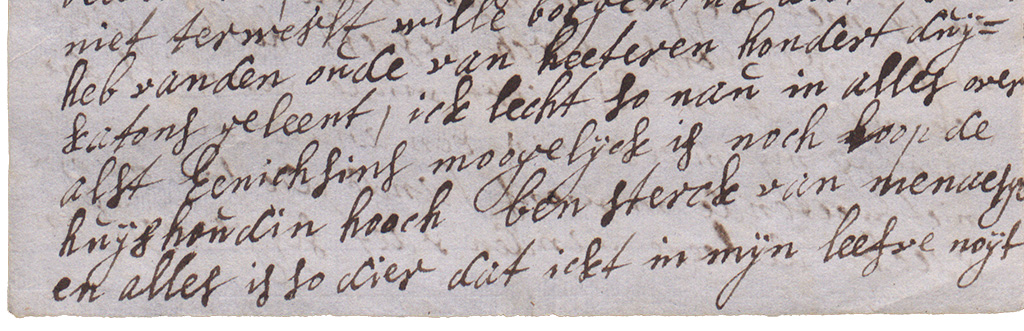 niet terwerlt wille borgen
heb vanden oude van heeteren hondert duy=
katons geleent, ick lecht so nau in alles over
alst Eenichsins moogelyck is noch loop de
huyshoudin hooch ben sterck van menaesge
en alles is so dier dat ickt in mijn leefve noyt